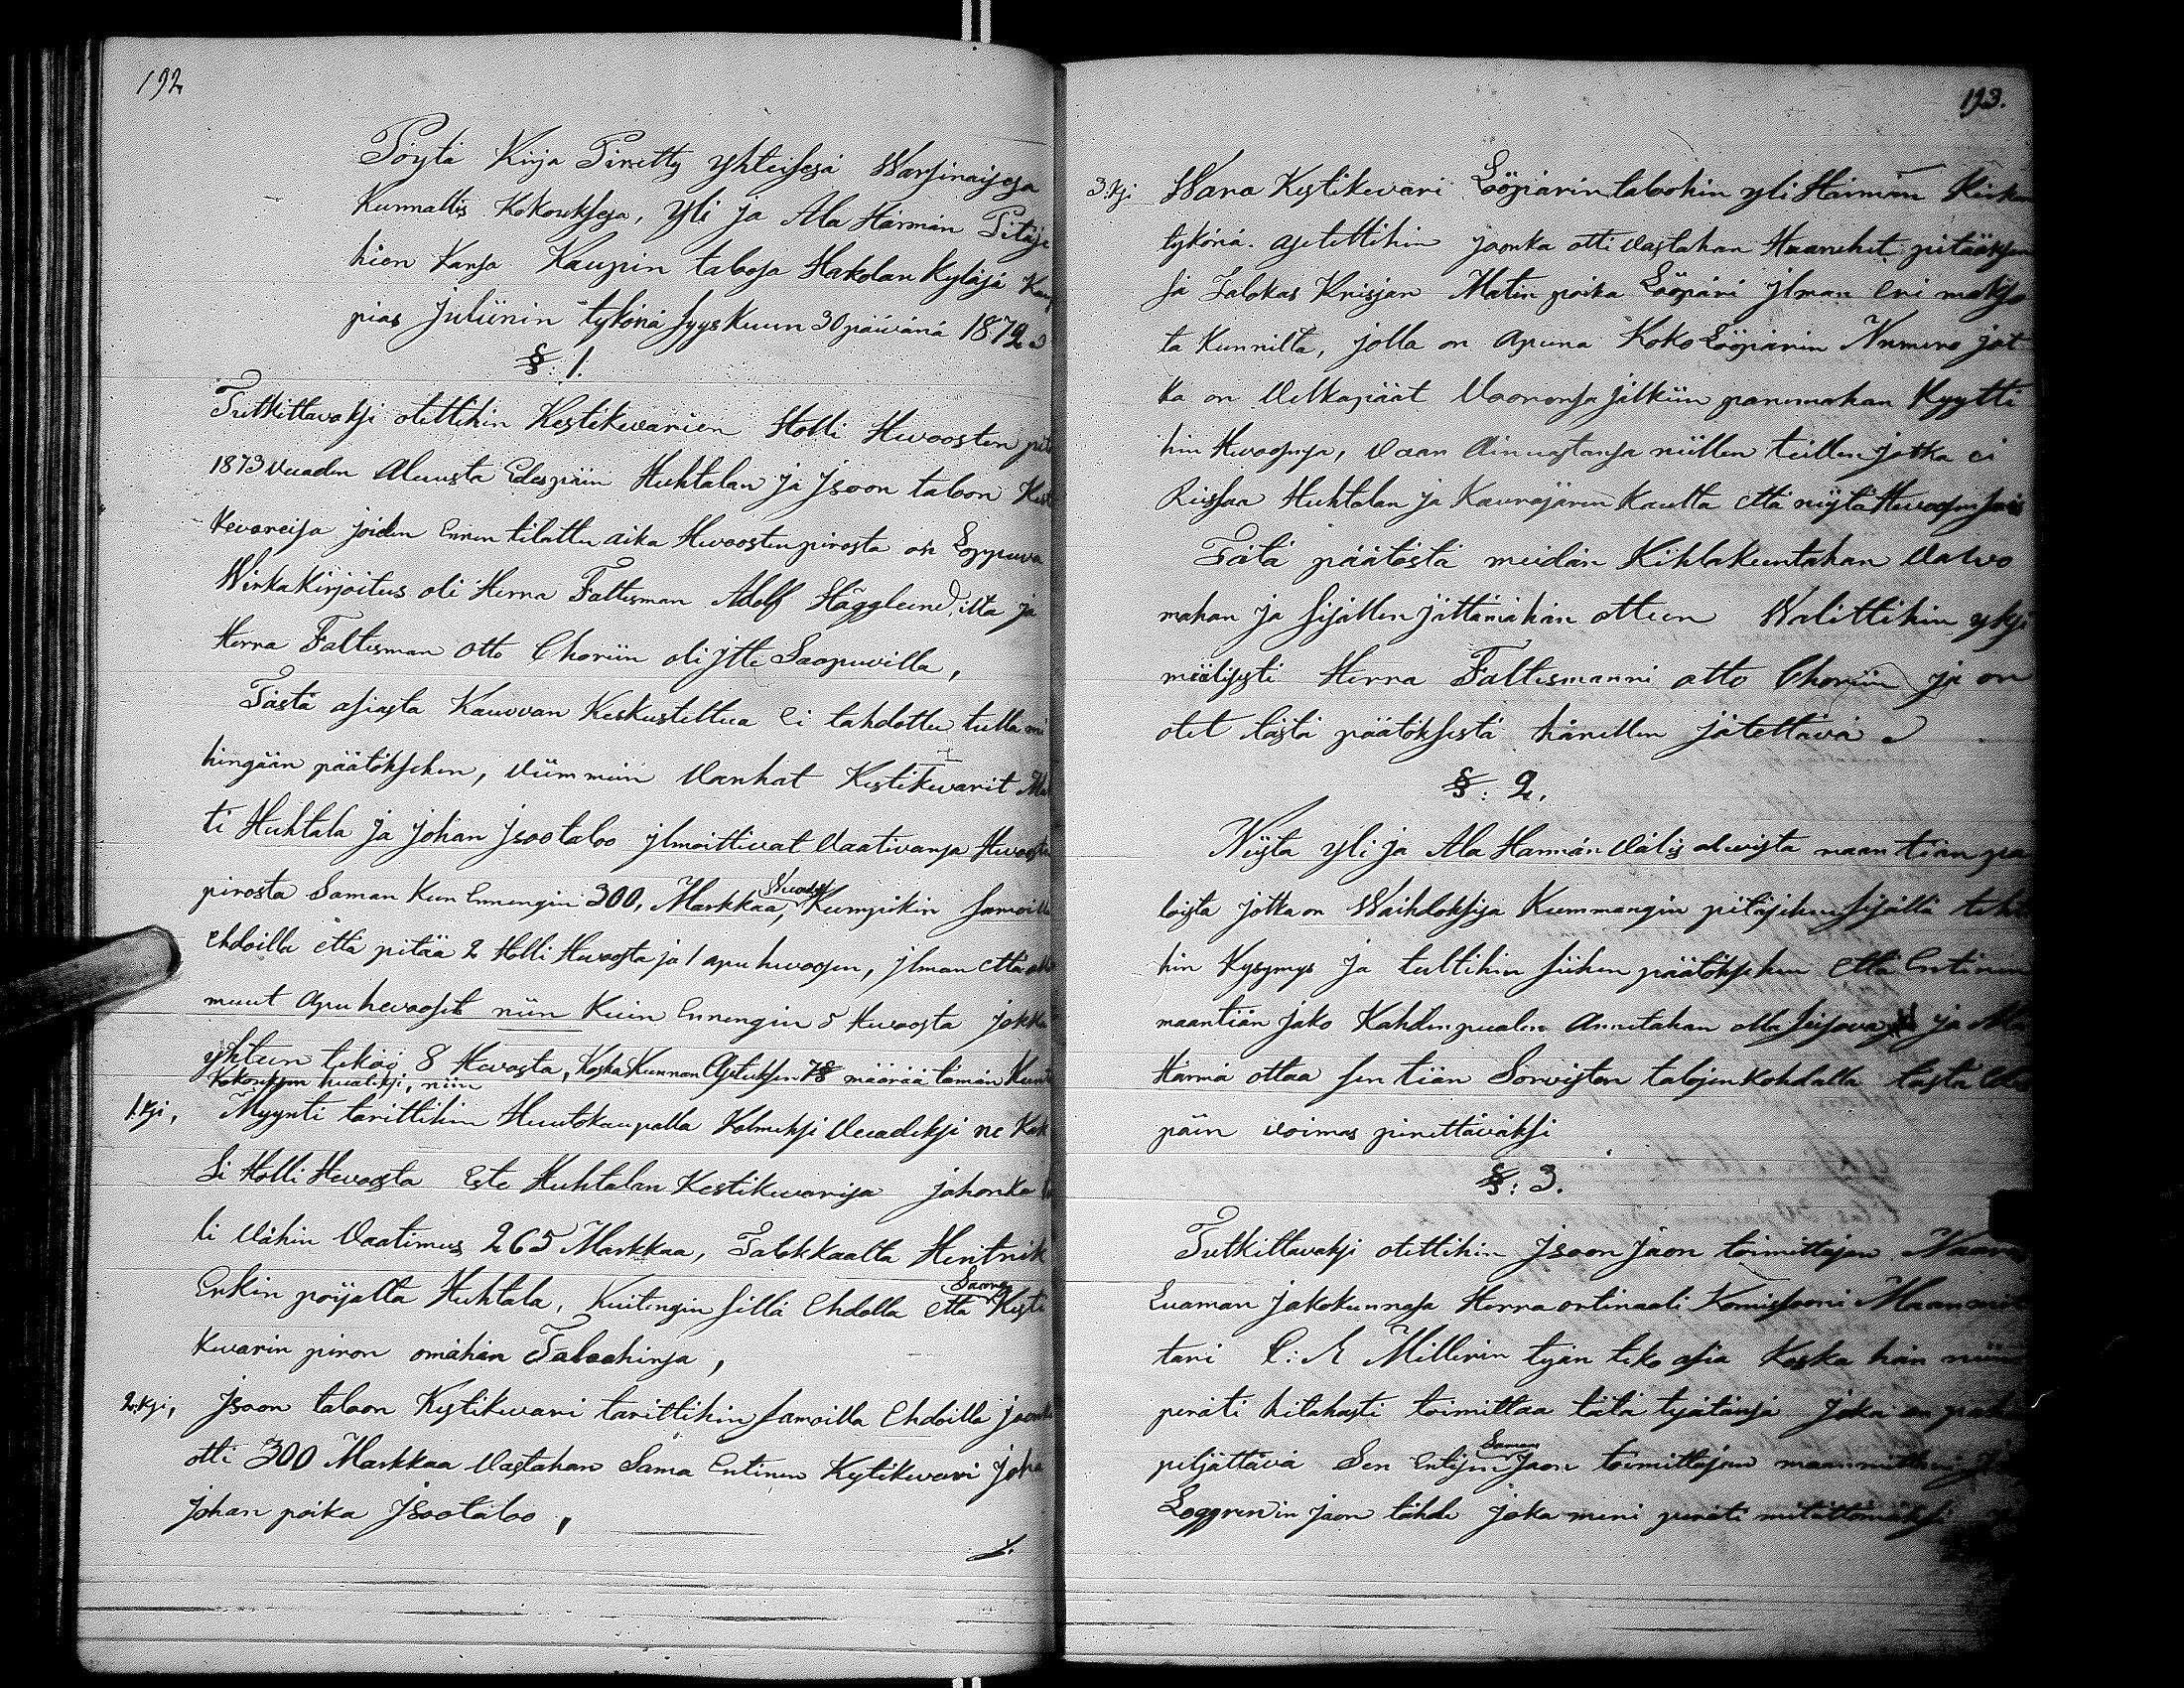 192
Pöytä Kirja Piretty yhteisesä Warsinaisesa
Kunnallis Kokouksesa, Yli ja Ala Härmän Pitäje
hien kansa Kaupin taloosa Hakolan Kyläsä Kaup
pias Juliinin tykönä syys Kuun 30 päivänä 1872
§: 1.
Tutkittavaksi otettihin Kestikevarien Holli Hevoosten pito
1873 vuaden Aluusta Edespäin Huhtalan ja Jsoon taloon Kesti
kevareisa joiden Ennen tilattu aika Hevoosten pirosta on Loppuva
Wirkakirjoitus oli Herra Faltesman Adolf Hägglund,ilta ja
Herra Faltesman Otto Choriin oli jtte Saapuvilla,
Tästä asiasta Kauvvan Keskusteltua Ei tahdottu tulla mi
hingään päätöksehen, viimmiin Vanhat Kestikevarit Mat
ti Huhtala ja Johan Jsootaloo jlmoittivat Vaativansa Hevoosten
pirosta Saman Kun Ennengin 300, Markkaa, Vuodest Kumpikin samoilla
Ehdoilla että pitää 2 Holli Hevoosta ja 1 apu hevoosen, jlman että
muut Apu hevooset niin Kuin Ennengin 5 Hevoosta jokka
yhteen teköö 8 Hevoosta, Koska Kunnan Asetuksen 78 määrää tämän Kunta
Kokouksen hualeksi, niin
1.ksi, Myynti tarittihin Huutokaupalla Kolmeksi Vuadeksi ne Kak
si Holli Hevoosta Este Huhtalan Kestikevarisa johonka tu
li Vähin Vaatimus 265 Markkaa, Talokkaalta Hentrik
Erkin pojalta Huhtala, Kuitengin sillä Ehdolla että Saana Kesti
kevarin piron omahan Taloohinsa,
2.ksi, Jsoon taloon Kestikevari tarittihin samoilla Ehdoilla jonka
otti 300 Markkaa Vastahan Sama Entinen Kestikevari Joha
Johan poika Jsootaloo,
193.
3.ksi Wara Kestikevari Lööpärin taloohin yli Härmän Kirkon
tykönä. asetettihin jonka otti vastahan Huonehet pitääksen
sä Talokas Krisjan Matin poika Lööpäri jlman Eri makso
ta Kunnilta, jolla on Apuna Koko Lööpärin Numero jot
ka on Velkapäät Vooronsa jälkiin panemahan Kyytti
hin Hevoosensa, Vaan Ainuastansa niillen teillen jotka ei
Reissaa Huhtalan ja Kaurajärven Kautta että niistä Hevoosen sais
Tätä päätöstä meidän Kihlakuntahan Valvo
mahan ja sisällen jättämähän otteen Walittihin yksi
mielisesti Herra Faltesmanni Otto Choriin ja on
otet tästä päätöksestä hänellen jätettävä
§: 2.
Niista yli ja Ala Härmän Välis olevista maan tiän pa
loista jotka on Waihdoksisa Kummangin pitäjehen sisällä tehi
hin Kysymys ja tultihin siihen päätöksehen että Entinen
maantiän jako Kahden puolen Annetahan olla seisova ja Ala
Härmä ottaa sen tiän Sorvistan talojen kohdalla tästä edes
päin voimas pirettäväksi
§: 3.
Tutkittavaksi otettihin Jsoon Jaon toimittajan Naara
Luaman Jakokunnasa Herra Ortinaali Komissooni Maanmit
tari C: M Millerin työn teko asia Koska hän
peräti hitahasti toimittaa tätä työtänsä joka on
peljättävä Sen Entisen Saman Jaon toimittajan maanmittari
Loggren'in jaon tähde joka meni peräti mitättömäksi